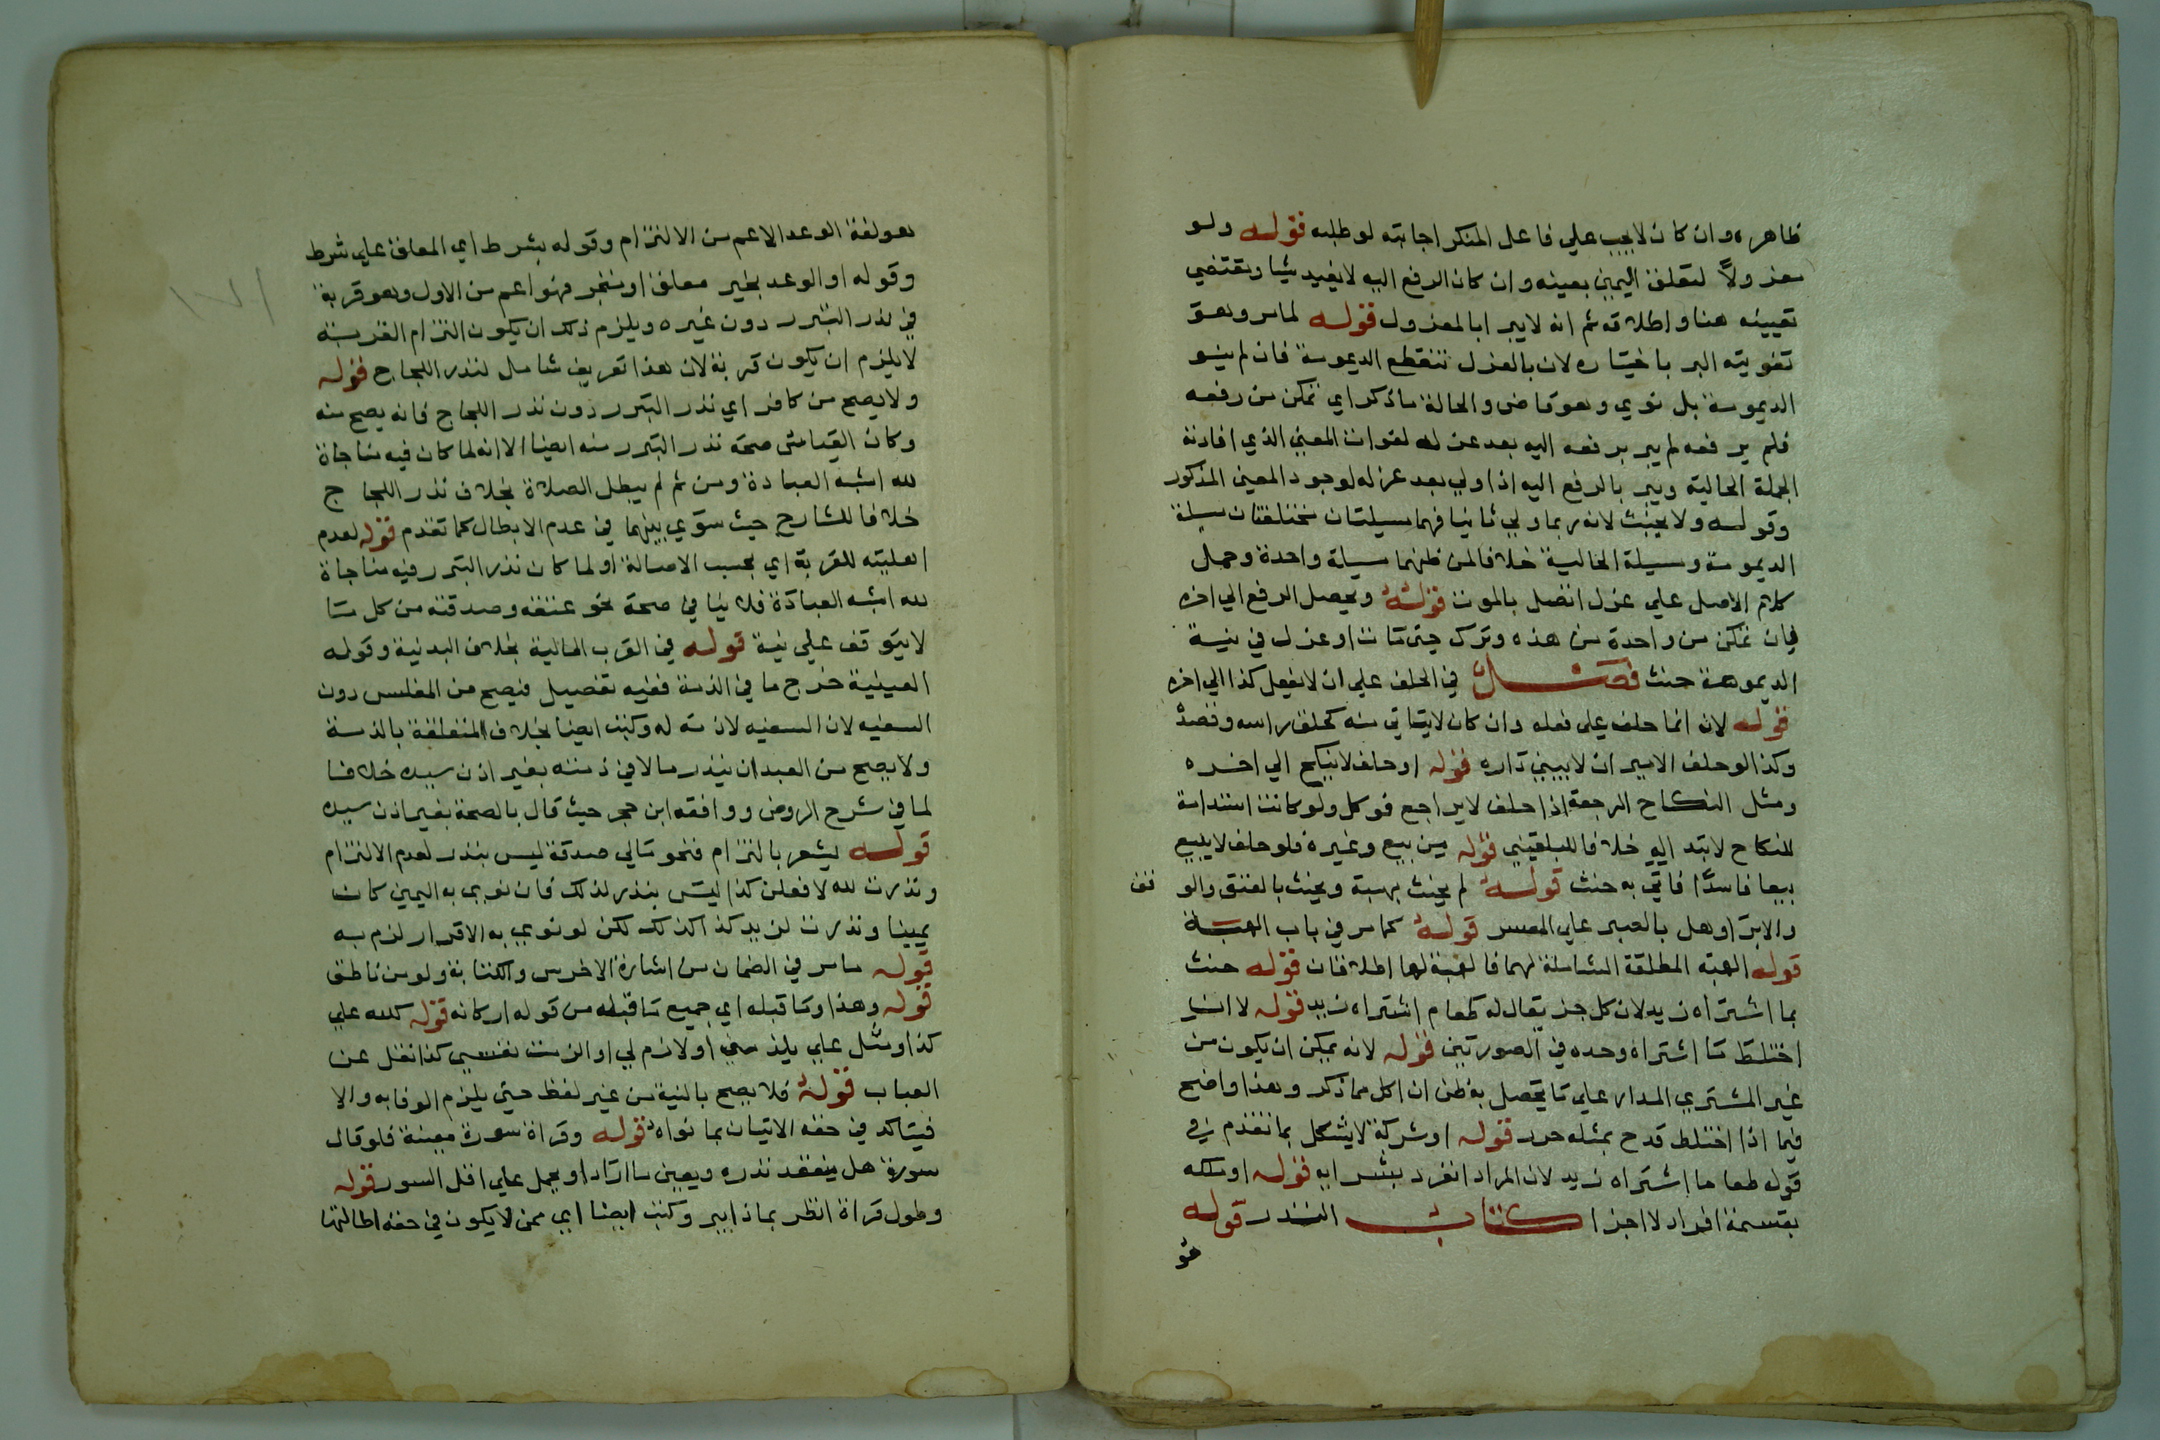 ظاهره وان كان لا يجب علي فاعل المنكر اجابته لو طلبه قوله ولو
معزولا لتعلق اليمين بعينه وان كان الرفع اليه لا يفيد شيا ويقتضي
تعيينه هنا واطلاقه ثم انه لا يبر ابالمعزول قوله لما مر وهو
تفويته البر باختياره لان بالعزل تنقطع الديمومة فان لم ينو
الديمومة بل نوي وهو قاض والحالة ما ذكر اي تمكن من رفعه
فلم يرفعه لم يبر برفعه اليه بعد عزله لفوات المعني الذي افادته
الجملة الحالية ويبر بالرفع اليه اذا ولي بعد عزله لوجود المعني المذكور
وقوله ولا يحنث لانه ربما ولي ثانيا فهما مسيلتان مختلفتان مسيلة
الديمومة ومسيلة الحالية خلافا لمن ظنهما مسيلة واحدة وحمل
كلام الاصل علي عزل اتصل بالموت قوله ويحصل الرفع الي اخره
فان تمكن من واحدة من هذه وترك حتي مات او عزل في نية
الديمومة حنث فصل في الحلف علي ان لا يفعل كذا الي اخره
قوله لانه انما حلف علي فعله وان كان لا يتاتي منه كحلق راسه وفصد
وكذا لو حلف الامير ان لا يبني داره قوله او حلف لا ينكح الي اخره
ومثل النكاح الرجعة اذا حلف لا يراجع فوكل ولو كانت استدامة
للنكاح لا ابتداؤه خلافا للبلقيني قوله من بيع وغيره فلو حلف لا يبيع
بيعا فاسدا فاتي به حنث قوله لم يحنث بهبة ويحنث بالعتق والو
قف
والابراء وهل بالعبر علي المعسر قوله كما مر في باب الهبة
قوله الهبة المطلقة الشاملة لهما فالهبة لها اطلاقان قوله حنث
بما اشتراه زيد لان كل جز يقال له طعام اشتراه زيد قوله لا ان
اختلط ما اشتراه وحده في الصورتين قوله لانه يمكن ان يكون من
غير المشتري المدار علي ما يحصل به ظن ان اكل مما ذكر وهذا واضح
فيما اذا اختلط قدح بمثله حرر قوله او شركة لا يشكل بما تقدم في
قوله طعاما اشتراه زيد لان المراد انفرد بشرايه قوله او ملكه
بقسمة افراد لا اجزا كتاب النذر قوله
هو
هو لغة الوعد الاعم من الالتزام وقوله بشرط اي المعلق علي شرط
وقوله او الوعد بخير معلقا او منجز فهو اعم من الاول وهو قربة
في نذر التبرر دون غيره ويلزم ذلك ان يكون التزام القربة
لا يلزم ان يكون قربة لان هذا تعريف شامل لنذر اللجاج قوله
ولا يصح من كافر اي نذر التبرر دون نذر اللجاج فانه يصح منه
وكان القياس صحة نذر التبرر منه ايضا الا انه لما كان فيه مناجاة
لله اشبه العبادة ومن ثم لم يبطل الصلاة بخلاف نذر اللجاج
خلافا للشارح حيث سوي بينهما في عدم الابطال كما تقدم قوله لعدم
اهليته للقربة اي بحسب الاصالة او لما كان نذر التبرر فيه مناجاة
لله اشبه العبادة فلا ينافي صحة نحو عتقه وصدقته من كل ما
لا يتوقف علي نية قوله في القرب المالية بخلاف البدنية وقوله
العينية خرج ما في الذمة ففيه تفصيل فيصح من المفلس دون
السفيه لان السفيه لا ذمة له وكتب ايضا بخلاف المتعلقة بالذمة
ولا يصح من العبد ان ينذر مالا في ذمته بغير اذن سيده خلافا
لما في شرح الروض ووافقه ابن حجر حيث قال بالصحة بغير اذن سيده
قوله يشعر بالتزام فنحو مالي صدقة ليس بنذر لعدم الالتزام
ونذرت لله لافعلن كذا ليس بنذر لذلك فان نوي به اليمين كان
يمينا ونذرت لزيد كذا كذلك لكن لو نوي به الاقرار لزم به
قوله ما مر في الضمان من اشارة الاخرس والكتابة ولو من ناطق
قوله وهذا وما قبله اي جميع ما قبله من قوله اركانه قوله كلله علي
كذا ومثل علي يلزمني او لازم لي او الزمت نفسي كذا نقل عن
العباب قوله فلا يصح بالنية من غير لفظ حتي يلزم الوفا به والا
فيتاكد في حقه الاتيان بما نواه قوله وقراة سورة معينة فلو قال
سورة هل ينعقد نذره ويعين ما اراد او يحمل علي اقل السور قوله
وطول قراة انظر بماذا يبر وكتب ايضا اي ممن لا يكون في حقه اطالتها